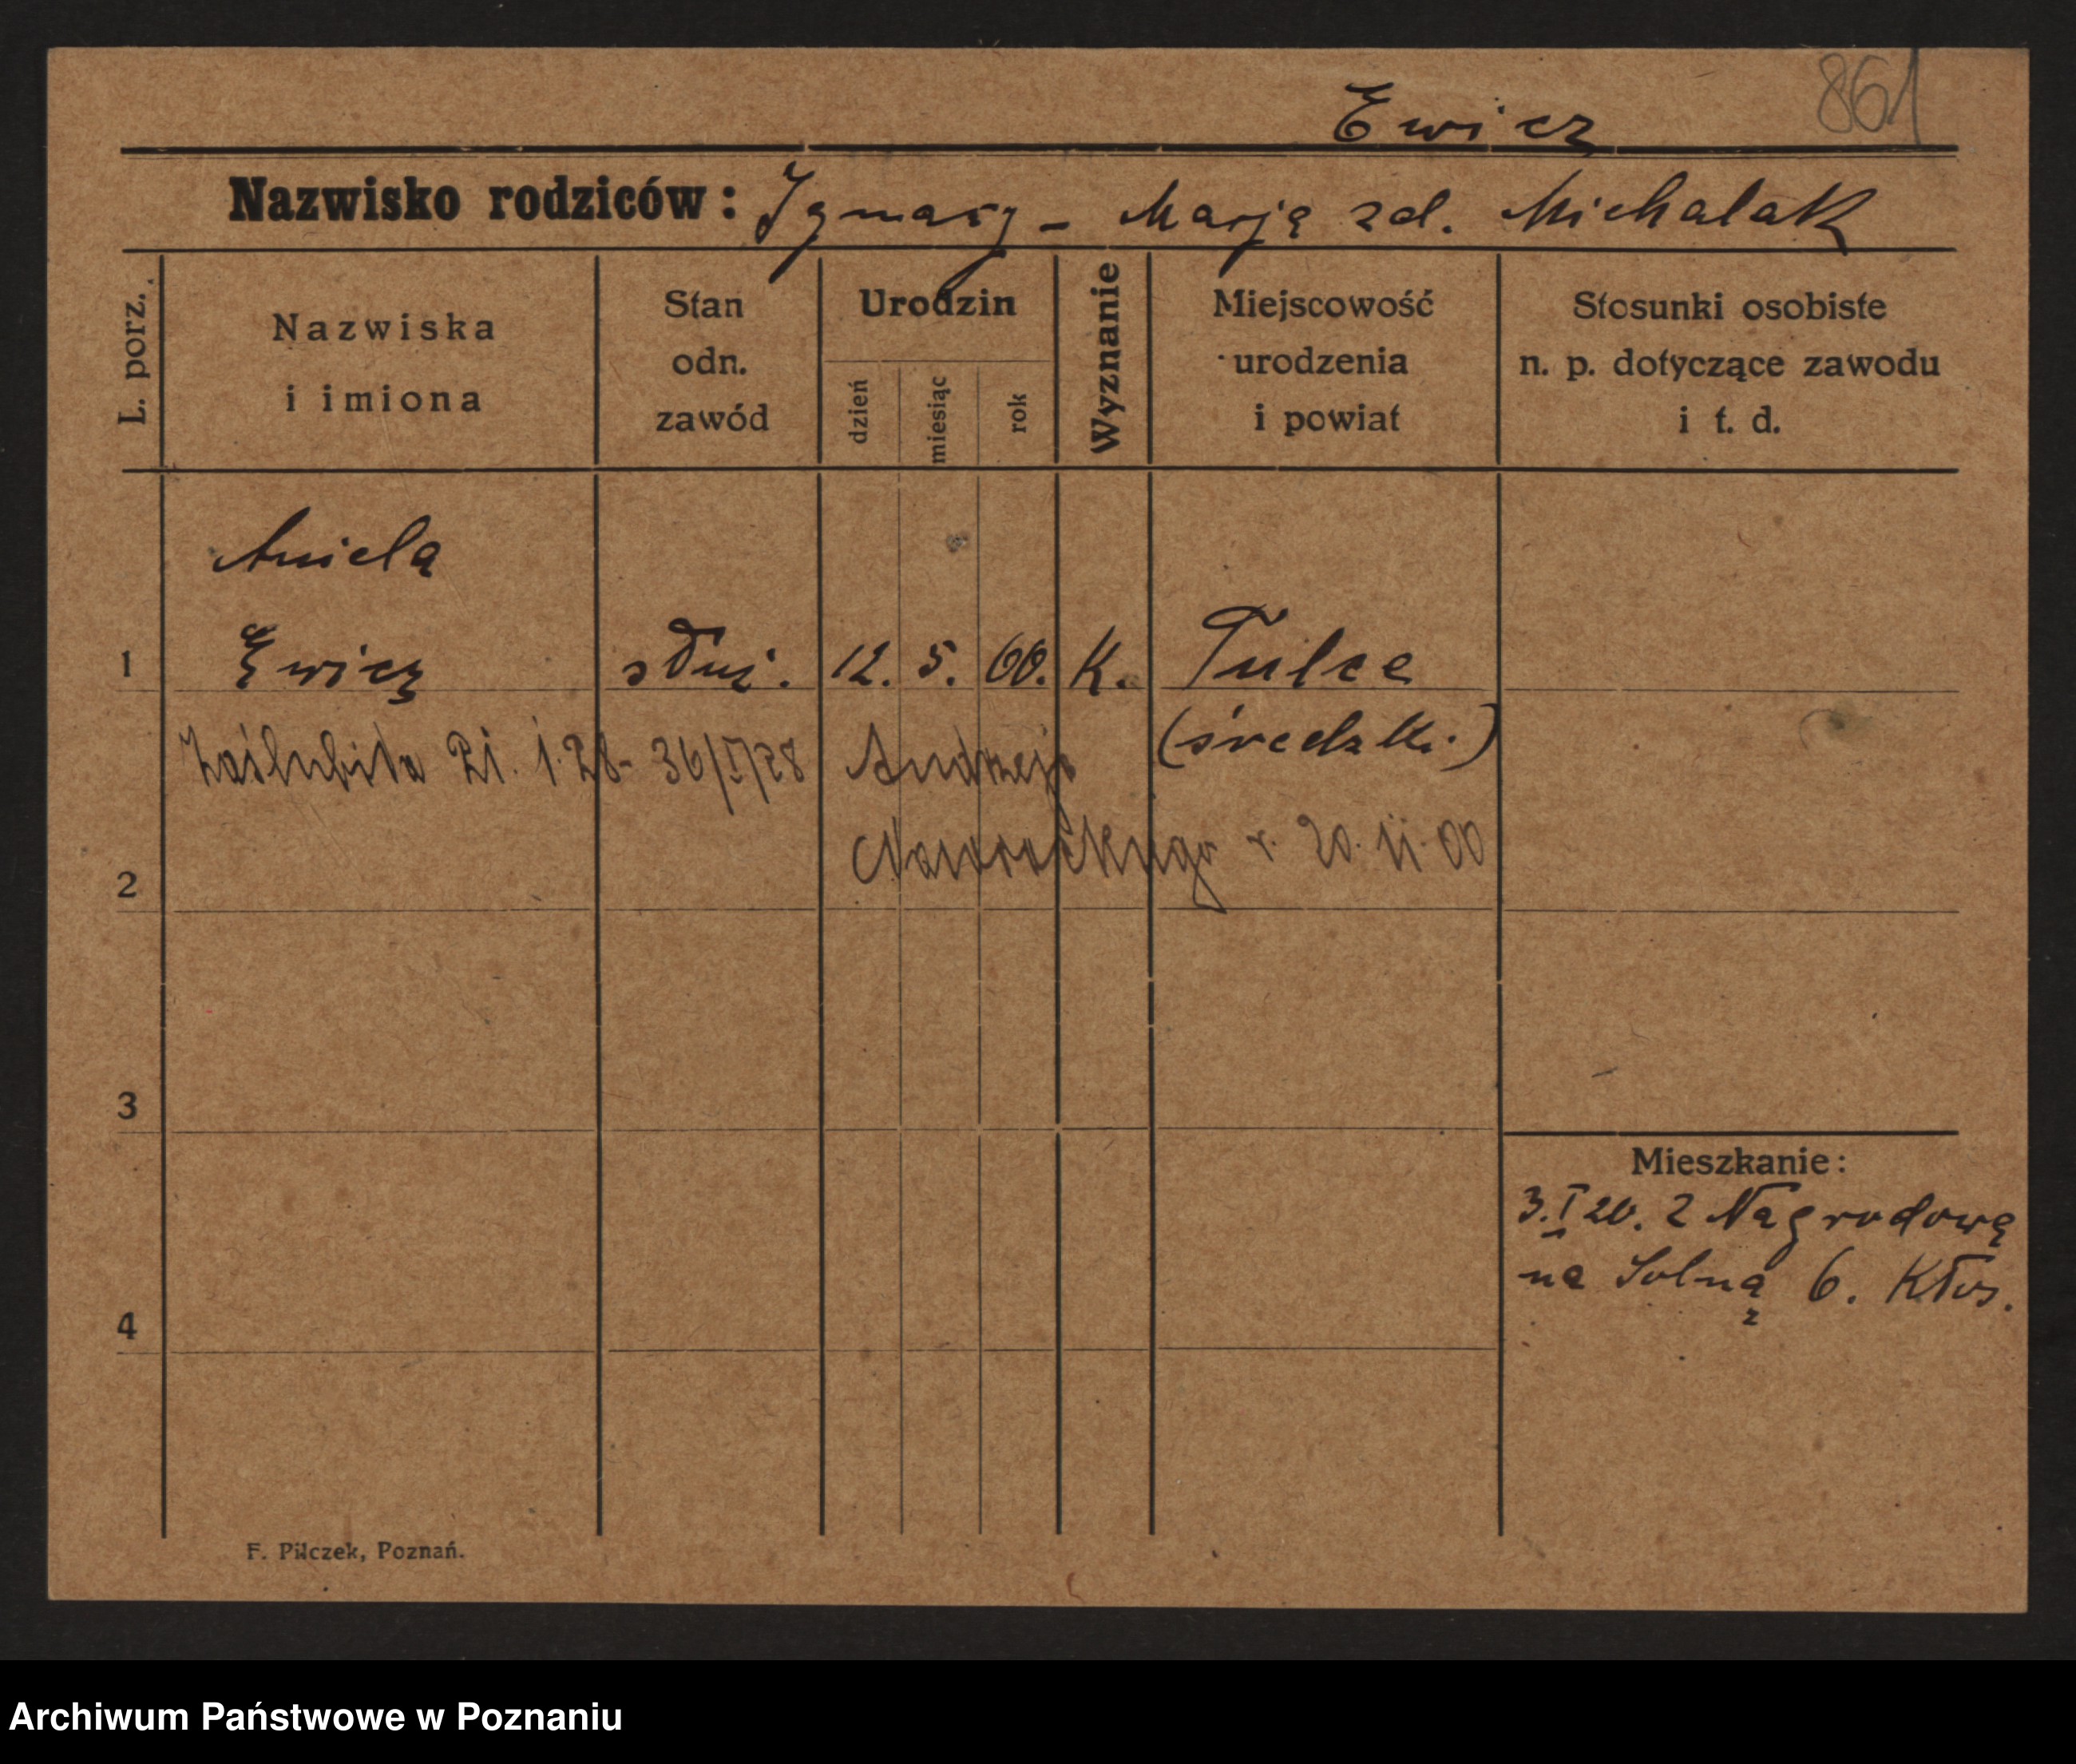 861
Ewicz
Nazwisko rodziców: Ignacy - Marja zd. Michalak
L. porz.
Nazwiska
i imiona
Stan
odn.
zawód
Urodzin
dzień
miesiąc
rok
Wyznanie
Miejscowość
urodzenia
i powiat
Stosunki osobiste
n. p. dotyczące zawodu
i t. d.
Aniela
1 Ewicz służ. 12. 5. 00. K. Tulce
Zaślubiła 21. 1. 28 - 36/I/28 Andrzeja (średzki.)
Nawrockiego r. 20. 11. 00
2
3
Mieszkanie:
3. I 20. z Nagrodową
na Solną 6. Kłos.
4
F. Pilczek, Poznań.
Archiwum Państwowe w Poznaniu